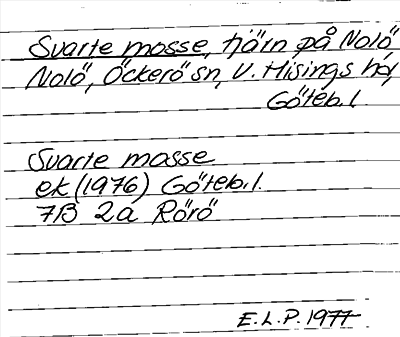 Svarte mosse, tjärn på Nolö
Nolö, Öckerö sn, V. Hisings hd,
Göteb.l.
Svarte mosse
ek (1976) Göteb.l.
7B 2a Rörö
E.L.P. 1977